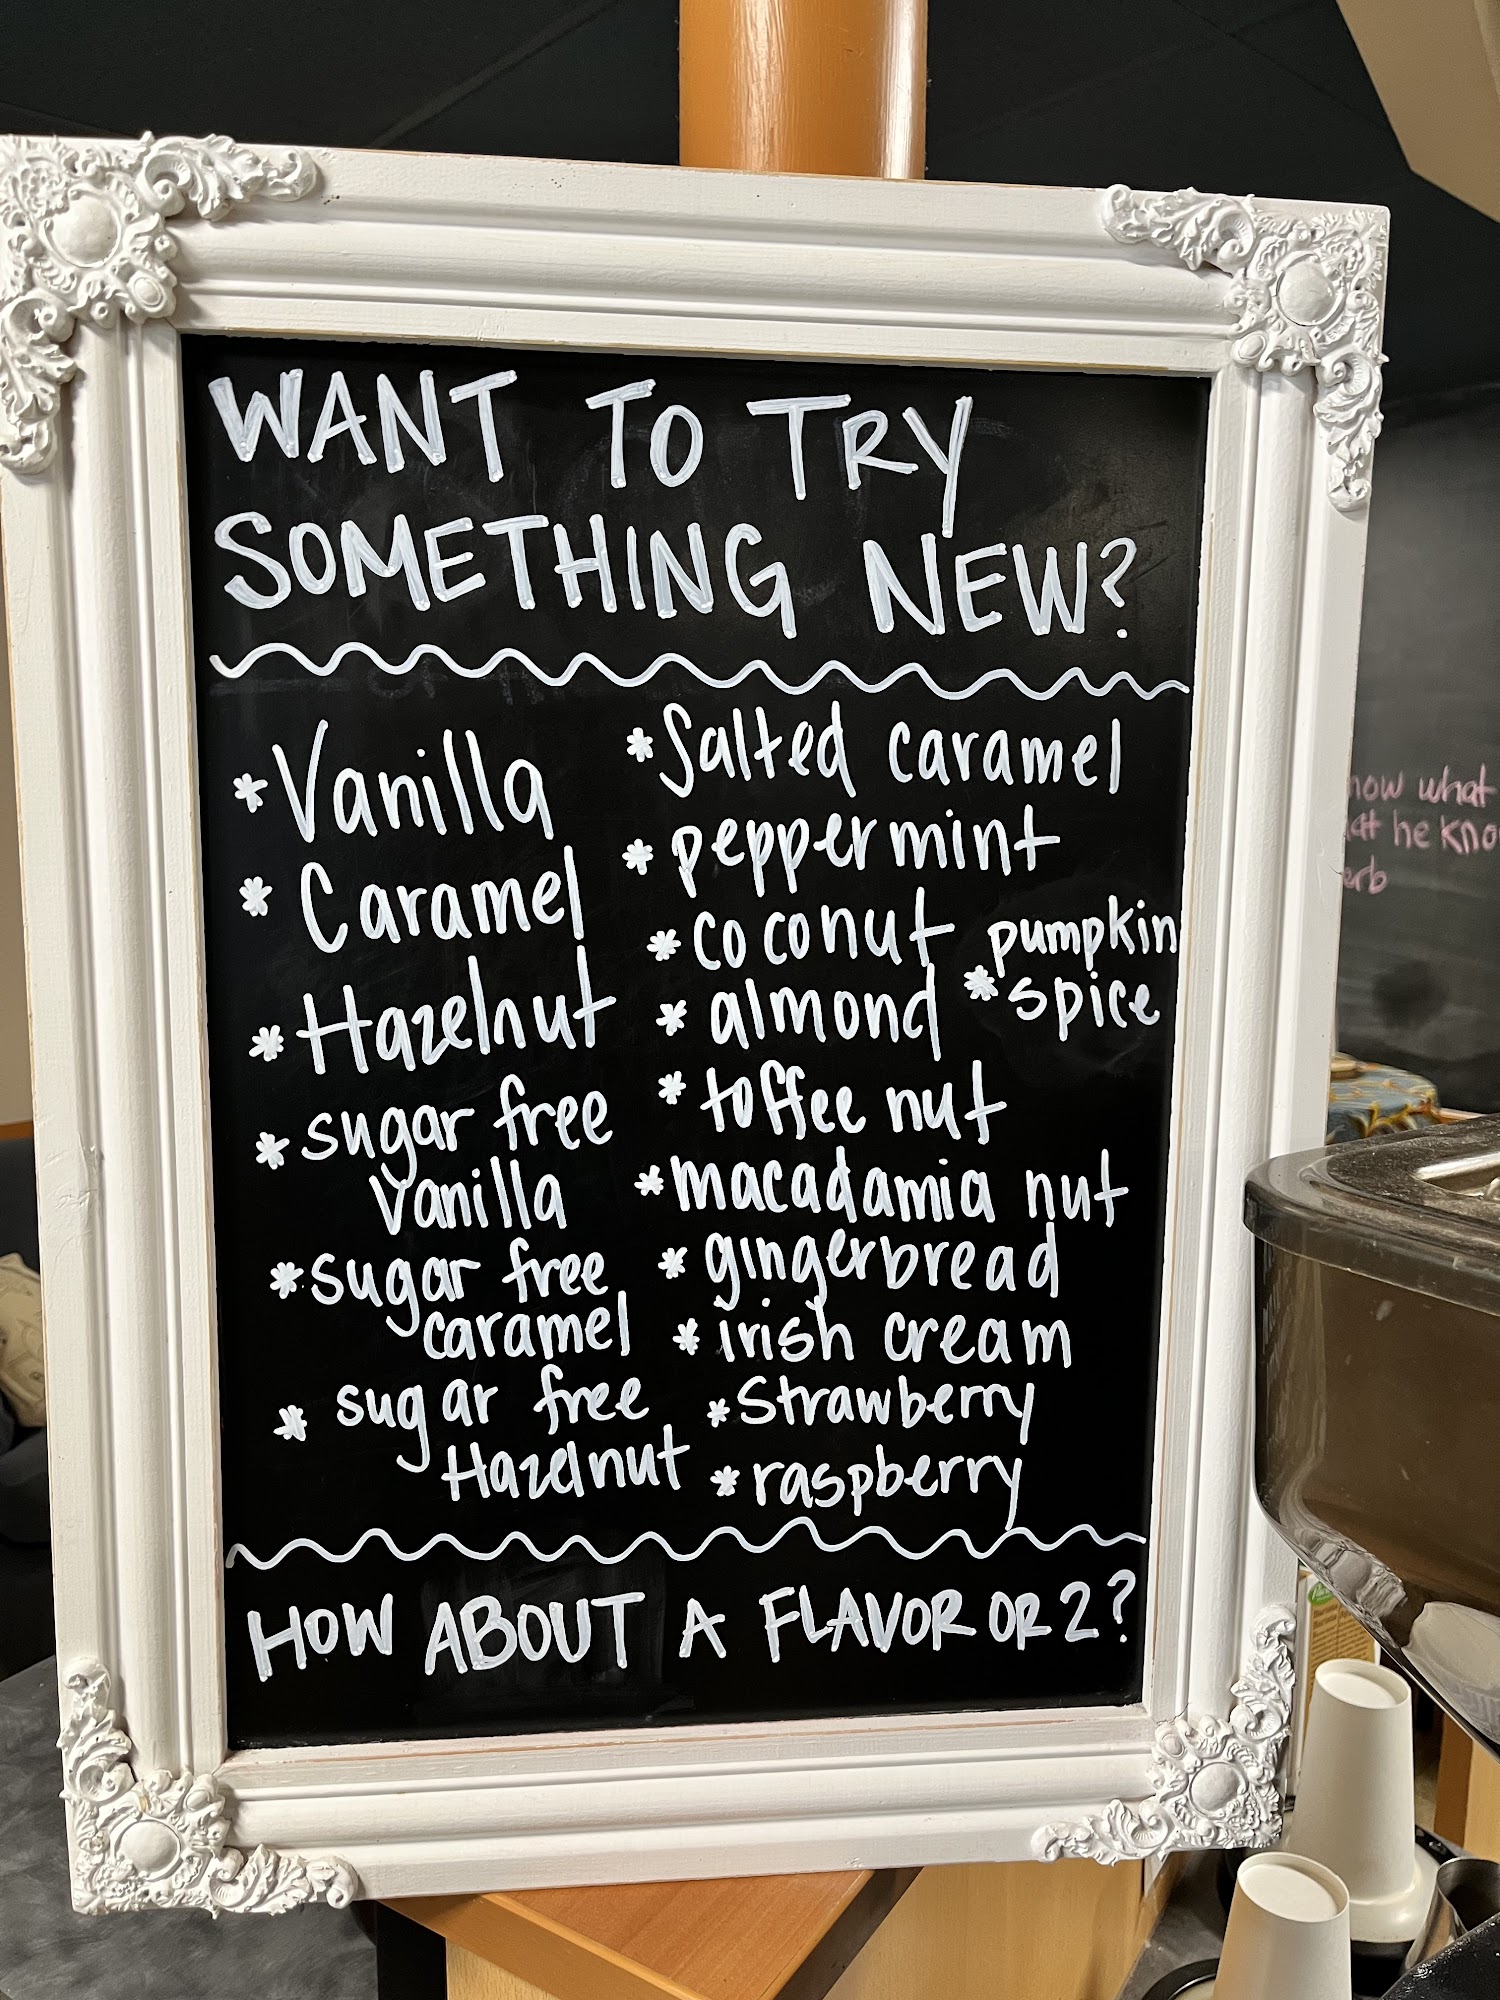 WANT TO TRY
SOMETHING NEW?
*Vanilla
* Caramel
* Hazelnut
* sugar free
Vanilla
* sugar free
caramel
* sugar free
Hazelnut
* Salted caramel
* peppermint
* coconut
* almond
pumpkin
* spice
* toffee nut
* macadamia nut
* gingerbread
* irish cream
* Strawberry
* raspberry
HOW ABOUT A FLAVOR OR 2?
what
he